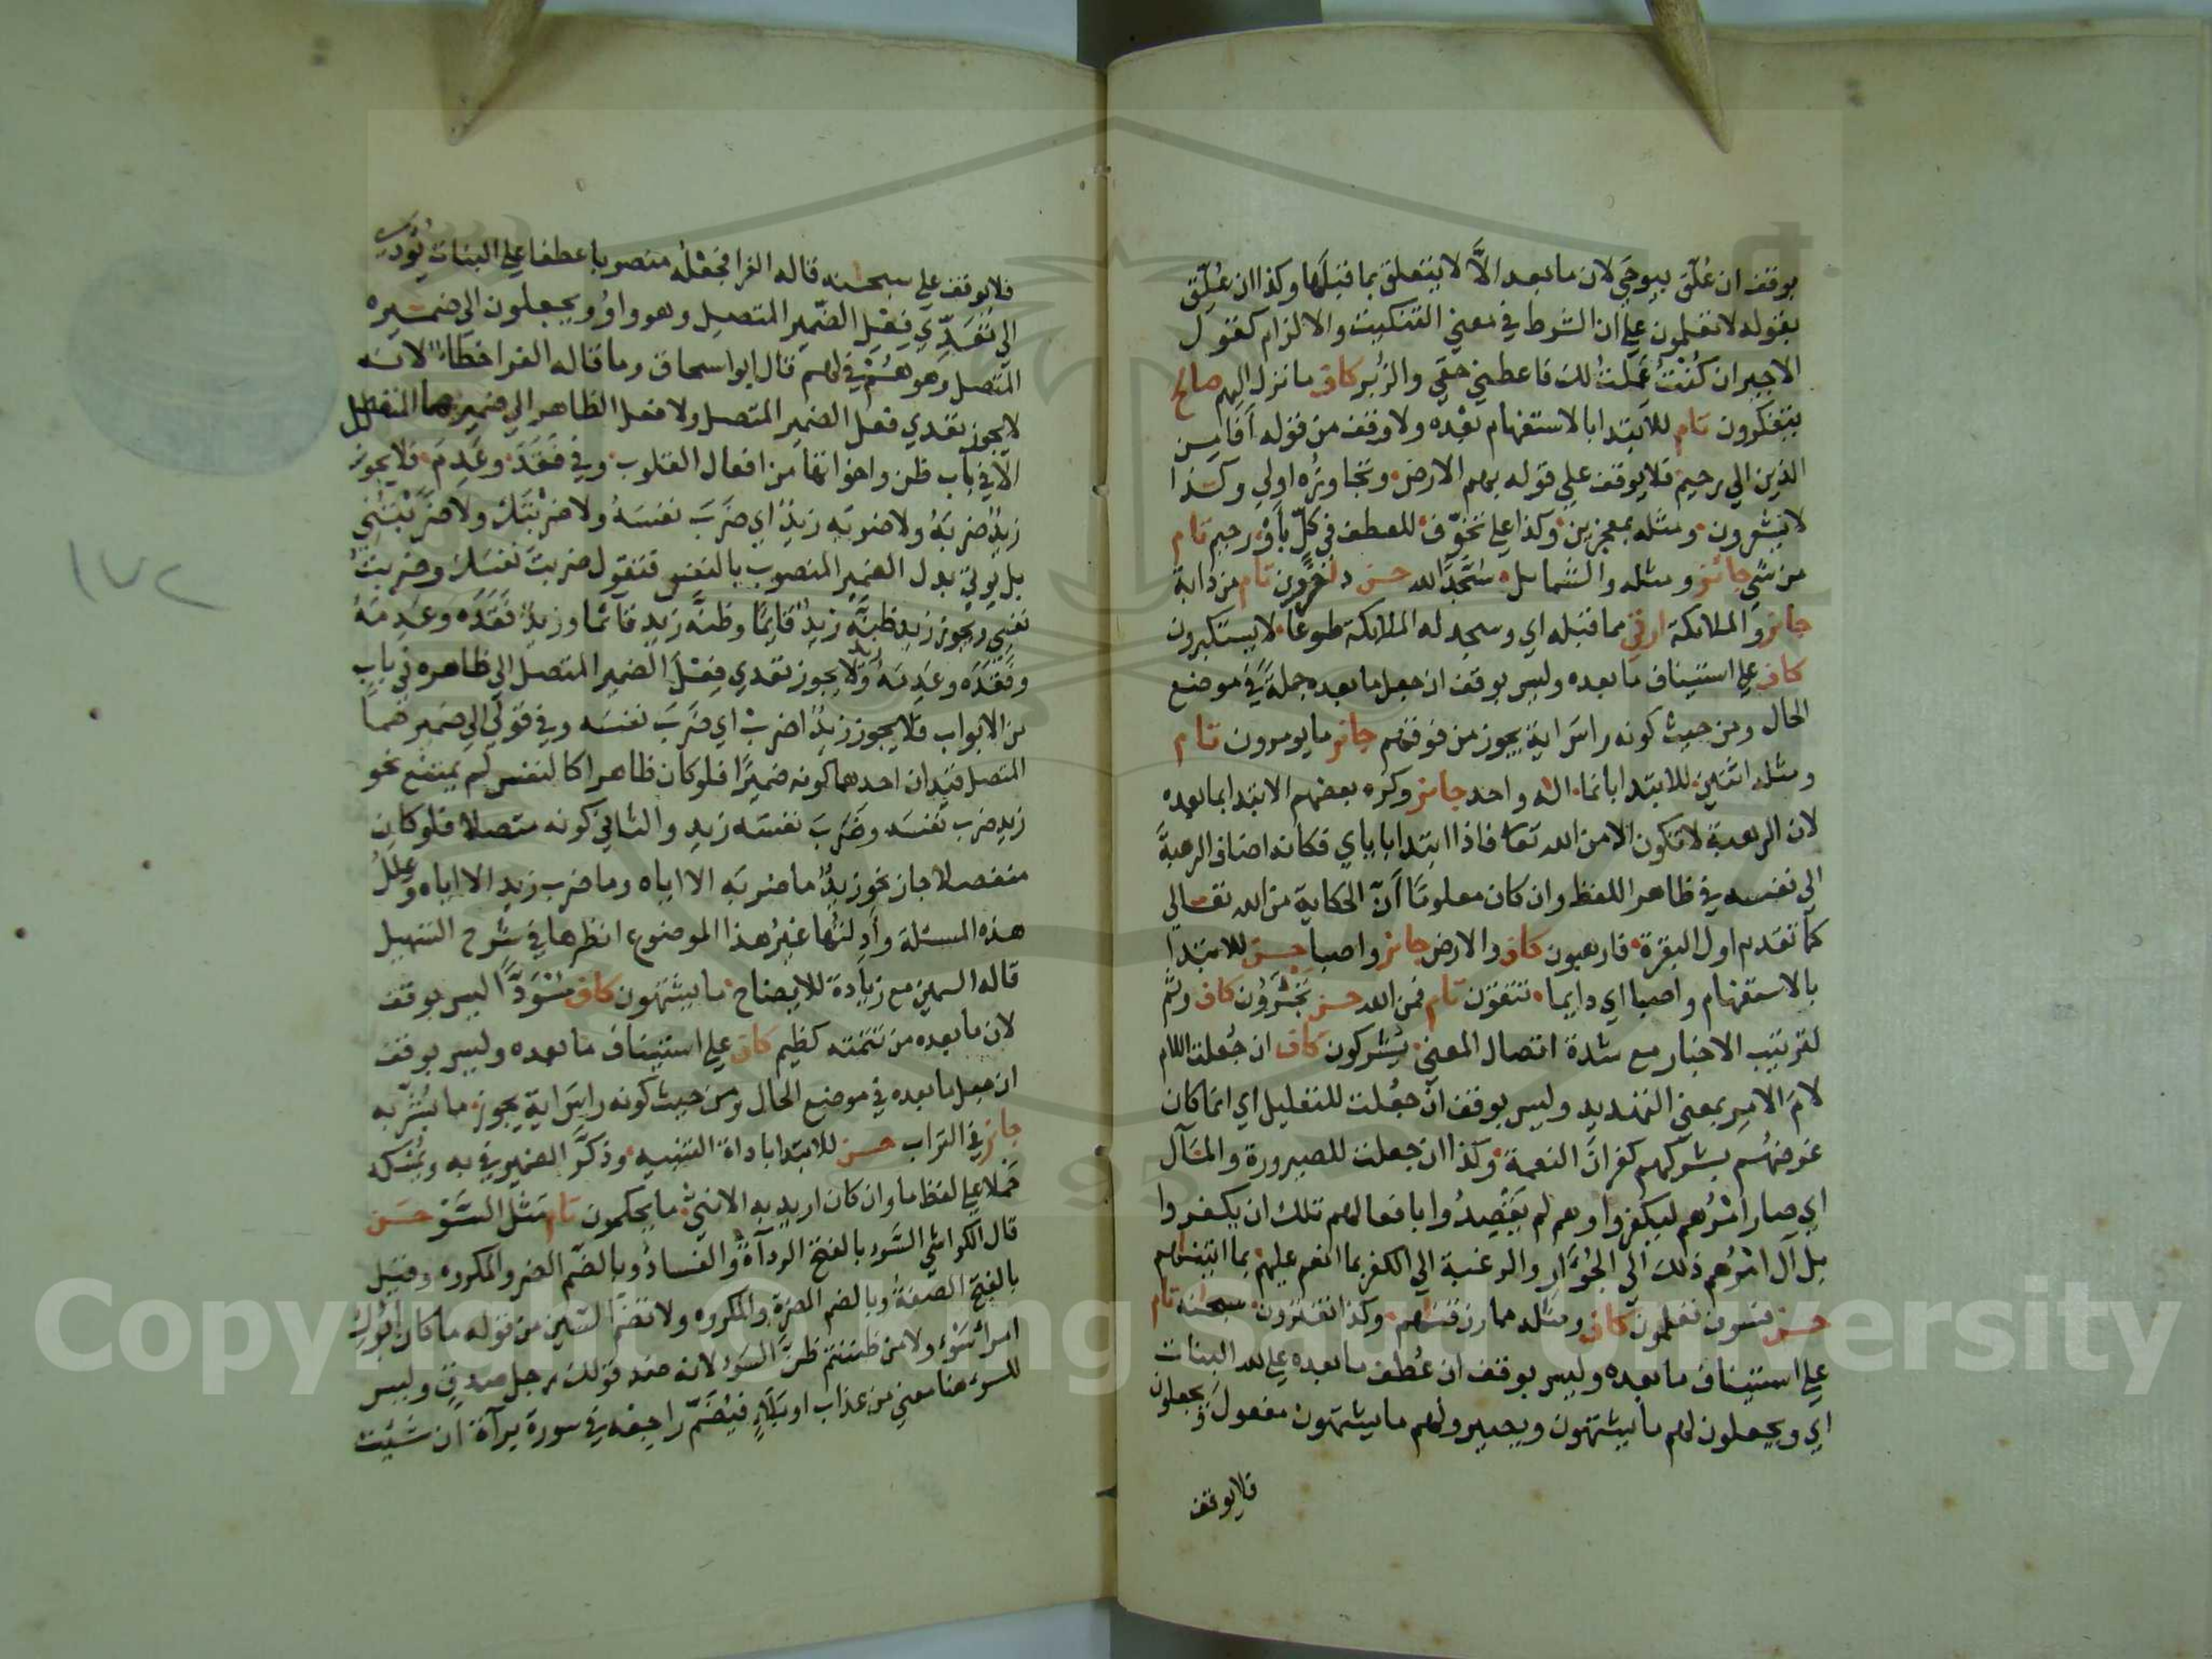 بوقف ان عُلّق بيوحي لان ما بعد الَّا لا يتعلق بما قبلها وكذا ان عُلّق
بقوله لا تعلمون على ان الشرط في معني التبكيت والالزام كقول
الاجير ان كُنْتُ عَمِلْتُ لك فاعطني حقي والزُبُر كاف ما نزل اليهم صالح
يتفكرون تام للابتدا بالاستفهام بعده ولا وقف من قوله أفأمن
الذين الي رحيم فلا يوقف علي قوله بهم الارض وتجاوزُه اولي وكذا
لا يشعرون ومثله بمعجزين وكذا علي تخوّف للعطف في كلّ بأوْ رحيم تام
من شي جائز ومثله والشمايل سُجَّدًا لله حسن داخرون تام من دابة
جائز والملايكة ارقي مما قبله اي وسجد له الملايكة طوعًا لا يستكبرون
كاف علي استيناف ما بعده وليس بوقف ان جعل ما بعده جملةً في موضع
الحال ومن حيث كونه راسَ ايةٍ يجوز من فوقهم جائز ما يومرون تام
ومثله اثنين للابتدا بانما اله واحد جائز وكره بعضهم الابتدا بما بعده
لان الرهبة لا تكون الا من الله تعا فاذا ابتدا باياي فكانه اضاف الرهبة
الي نفسه في ظاهر اللفظ وان كان معلومًا أنّ الحكاية من الله تعالي
كما تقدم اول البقرة فارهبون كاف والارض جائز واصبا حسن للابتدا
بالاستفهام واصبا اي دايما تتقون تام فمن الله حسن تَجْئَرُون كاف وثم
لترتيب الاخبار مع شدة اتصال المعني يشركون كاف ان جُعلت اللام
لامَ الامر بمعني التهديد وليس بوقف ان جُعلت للتعليل اي انما كان
غرضُهُم بشركهم كفرانَ النعمة وكذا ان جعلت للصيرورة والمَآل
اي صار امْرُهم ليكفروا وهم لم يَقْصِدُوا بافعالهم تلك ان يكفروا
بل آل امْرُهم ذلك الي الجُؤَار والرغبة الي الكفر بما انعم عليهم بما اتيناهم
حسن فسوف تعلمون كاف ومثله مما رزقناهم وكذا تفترون سبحنه تام
علي استيناف ما بعده وليس بوقف ان عُطف ما بعده علي لله البنات
اي ويجعلون لهم ما يشتهون ويصير ولهم ما يشتهون مفعولَ ويجعلون
فلا يوقف
فلا يوقف علي سبحنه قاله الفرا فجعْلُه منصوبا عطفا علي البنات يُؤدّي
الي تَعَدّي فِعْلِ الضمير المتصل وهو واوُ ويجعلون الي ضميره
المتصل وهو هُمْ في لهم قال ابو اسحاق وما قاله الفرا خطاءٌ لانه
لا يجوز تعدي فعل الضمير المتصل ولا فعل الظاهر الي ضميرهما المتصل
الا في باب ظن واخواتها من افعال القلوب وفي فَقَدَ وعَدِمَ فلا يجوز
زيدٌ ضربَهُ ولا ضربه زيدٌ اي ضَرَبَ نفسَهُ ولا ضربْتَكَ ولا ضَرَبْتُني
بل يوتي بدل الضمير المنصوب بالنفس فتقول ضربتَ نفسَكَ وضربتُ
نفسي ويجوز زيد ظنّهُ زيدٌ قايمًا وظنّه زيد قائما وزيدٌ فَقَدَه وعَدِمَهُ
وفَقَدَه وعَدِمَهُ زيد ولا يجوز تعدي فِعْلِ الضمير المتصل الي ظاهره في باب
من الابواب فلا يجوز زيدًا ضربَ اي ضَرَبَ نفسَه وفي قولي الي ضميرهما
المتصل قيدان احدهما كونه ضميرًا فلو كان ظاهرا كالنفس لم يمتنع نحو
زيد ضرب نفسَه وضَرَبَ نفسَه زيد والثاني كونه متصلا فلو كان
منفصلا جاز نحو زيدٌ ما ضربه الا اياه وما ضرب زيد الا اياه وعِلَلُ
هذه المسئلة وأدِلتُها غيرُ هذا الموضوع انظرها في شرح التسهيل
قاله السمين مع زيادة للايضاح ما يشتهون كاف مُسْوَدًّا ليس بوقف
لان ما بعده من تتمته كظيم كاف علي استيناف ما بعده وليس بوقف
ان جعل ما بعده في موضع الحال ومن حيث كونه راسَ ايةٍ يجوز ما بُشّر به
جائز في التراب حسن للابتدا باداة التنبيه وذكّر الضمير في به ويُمْسكه
حملا علي لفظ ما وان كان اريد به الانثي ما يحكمون تام مثل السَّوْءِ حَسَن
قال الكواشي السَّوء بالفتح الردآءةُ والفسادُ وبالضم الضر والمكروه وقيل
بالفتح الصفةُ وبالضم المضرّةُ والمكروه ولا تضم السّين من قوله ما كان أبُوكِ
امرأ سَوْءٍ ولا من ظننتم ظنّ السوء لانه ضد قولك رجل صدقٍ وليس
للسوء هنا معني من عذاب او بَلَآءٍ فيُضَمّ راجعْه في سورة برآءة ان شئت
١٧٢
Copyright © King Saud University